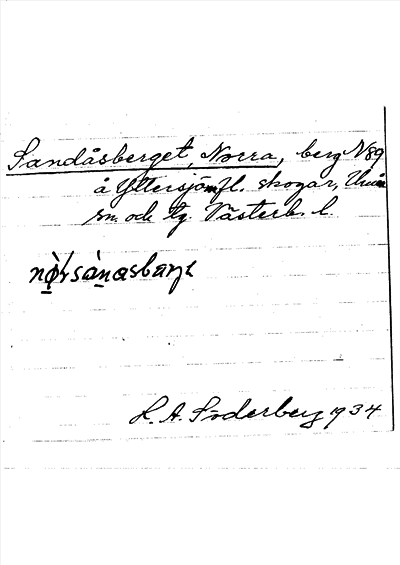 Sandåsberget, Norra, berg N89
å Yttersjömfl. skogar, Umeå
sn och tg. Västerb. l.
nø̀rsànasbærjɛ
S. A. Söderberg 1934